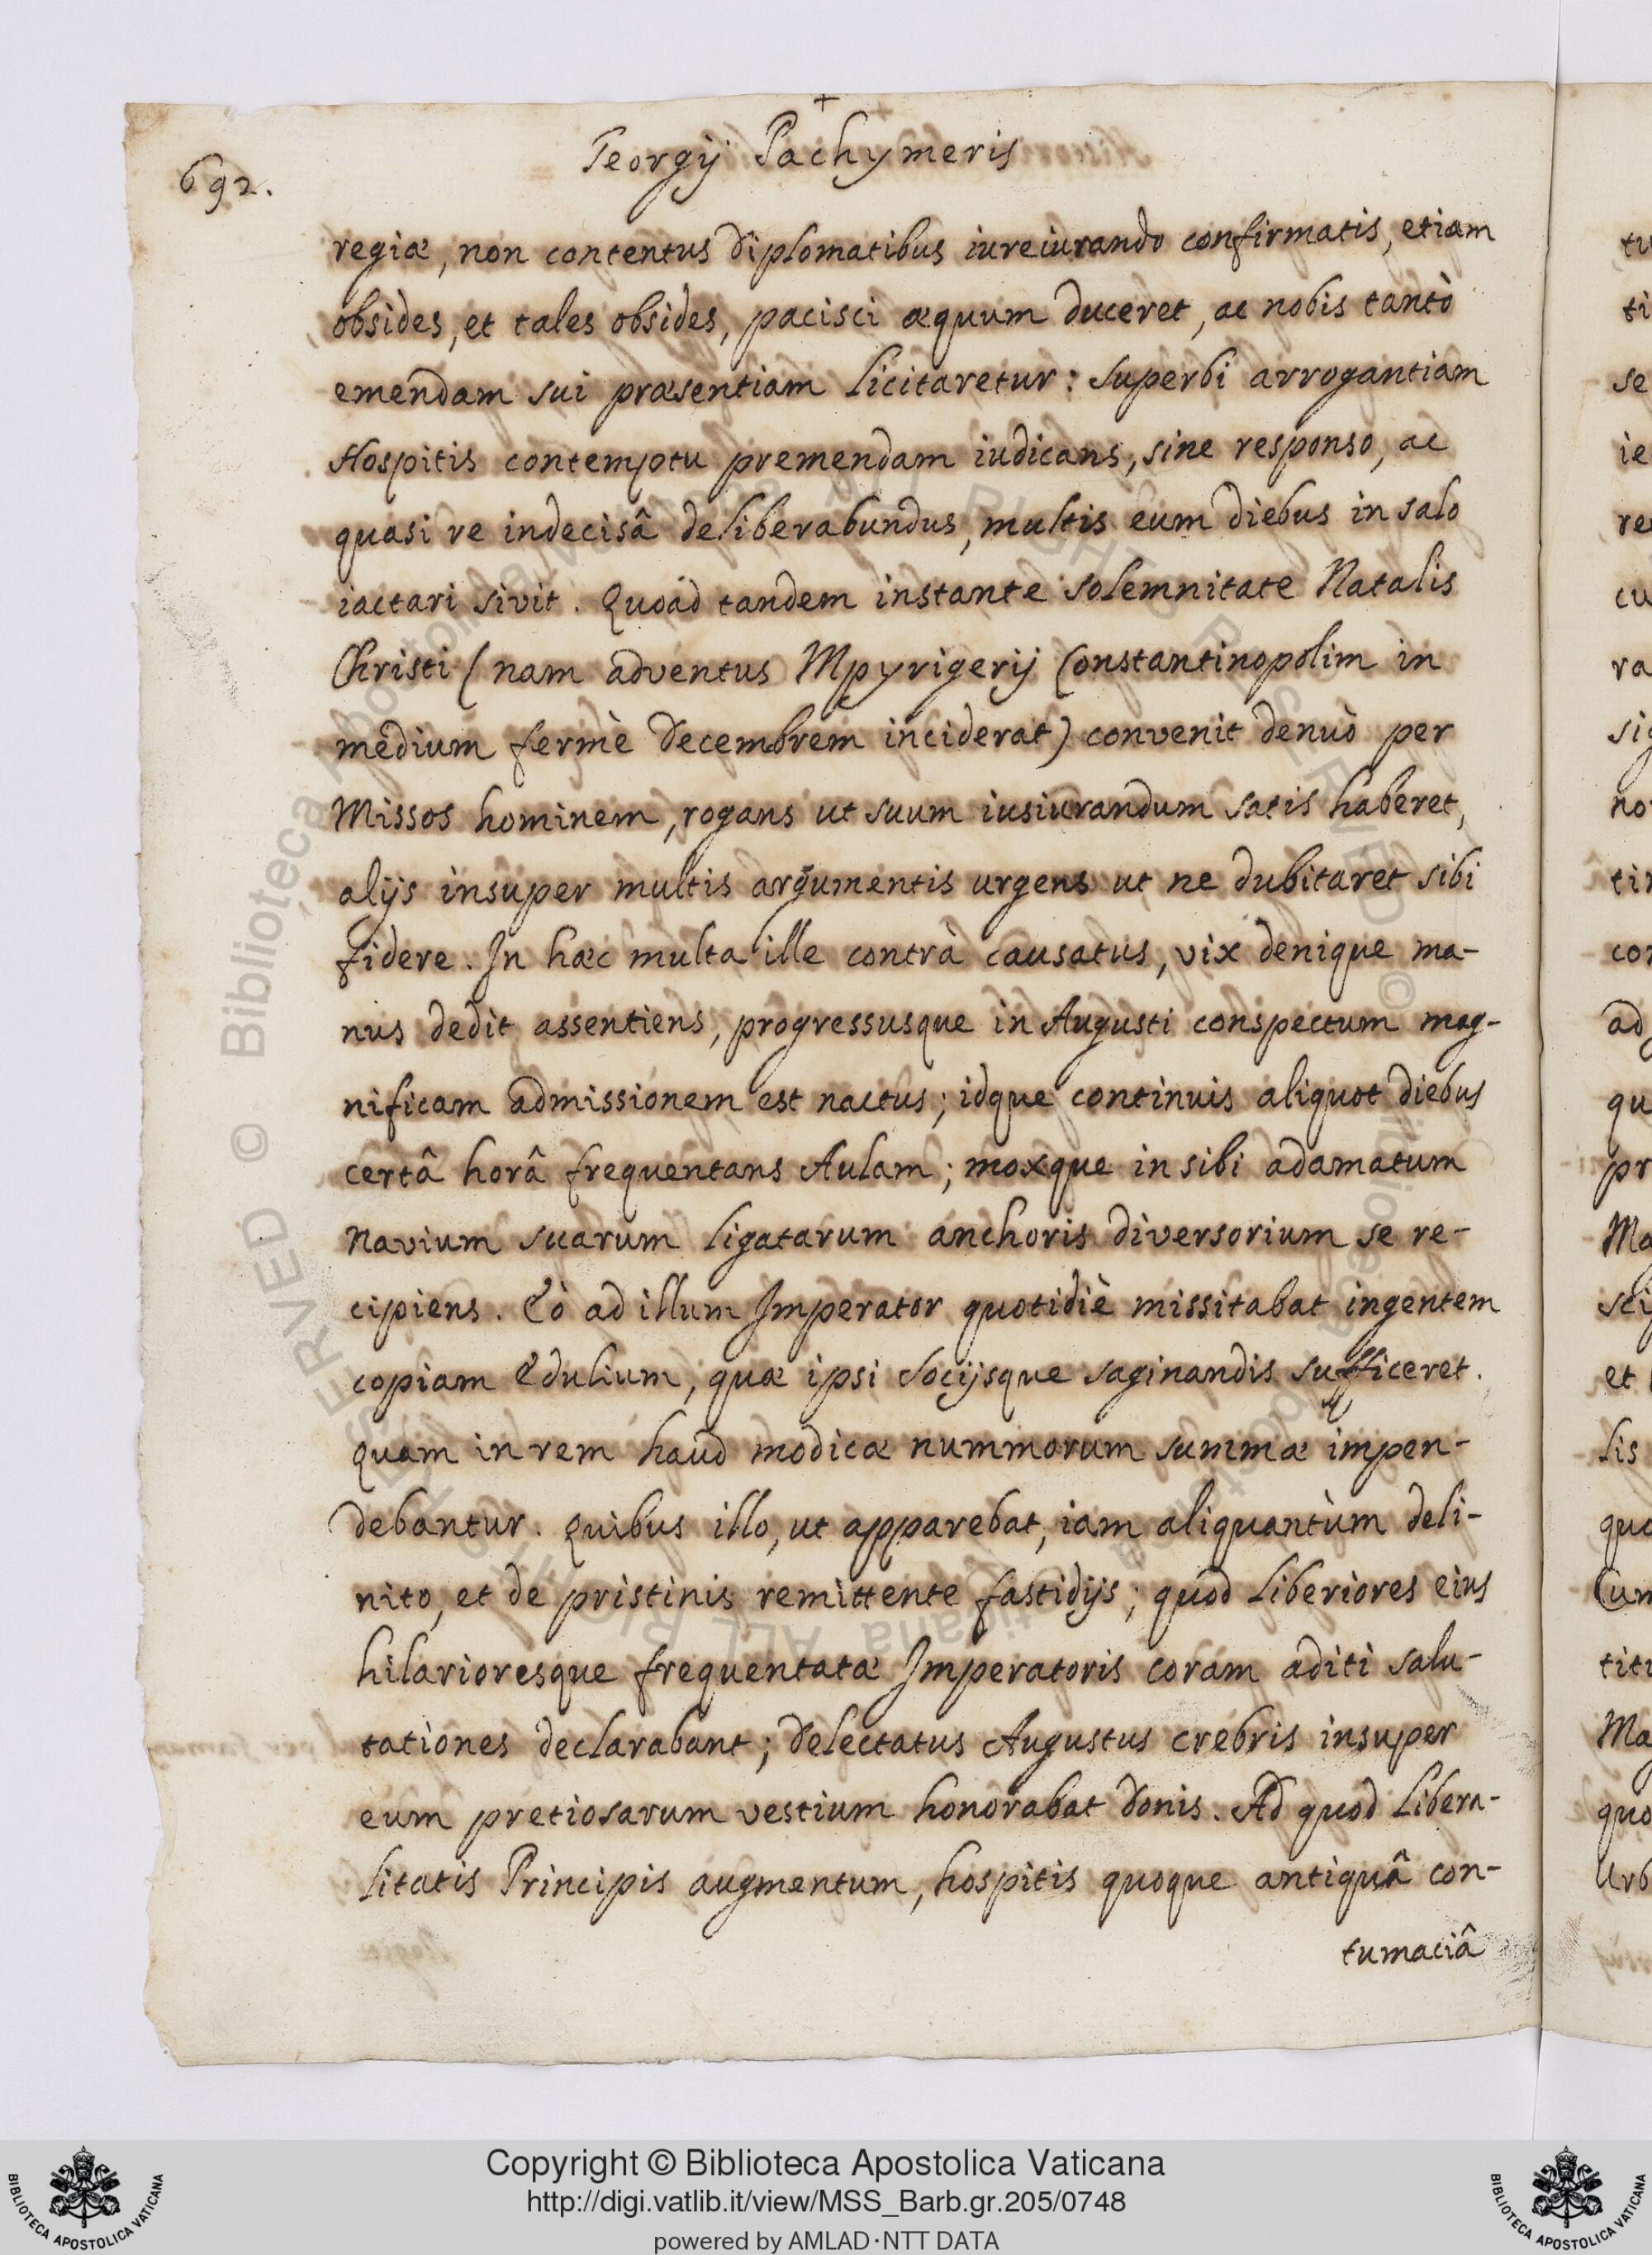 692.
Georgij Pachymeris
regiæ, non contentus diplomatibus iureiurando confirmatis, etiam
obsides, et tales obsides, pacisci æquum duceret, ac nobis tantò
emendam sui præsentiam licitaretur: superbi arrogantiam
Hospitis contemptu premendam iudicans, sine responso, ac
quasi re indecisâ deliberabundus, multis eum diebus in salo
iactari sivit. Quoad tandem instante solemnitate Natalis
Christi (nam adventus Mpyrigerij Constantinopolim in
medium fermè Decembrem inciderat) convenit denuò per
Missos hominem, rogans ut suum iusiurandum satis haberet,
alijs insuper multis argumentis urgens ut ne dubitaret sibi
fidere. In hæc multa ille contrà causatus, vix denique ma-
nus dedit assentiens, progressusque in Augusti conspectum mag-
nificam admissionem est nactus; idque continuis aliquot diebus
certâ horâ frequentans Aulam; moxque in sibi adamatum
navium suarum ligatarum anchoris diversorium se re-
cipiens. Eò ad illum Imperator quotidiè missitabat ingentem
copiam edulium, quæ ipsi socijsque saginandis sufficeret.
Quam in rem haud modicæ nummorum summæ impen-
debantur. Quibus illo, ut apparebat, iam aliquantùm deli-
nito, et de pristinis remittente fastidijs; quod liberiores eius
hilarioresque frequentatæ Imperatoris coram aditi salu-
tationes declarabant; delectatus Augustus crebris insuper
eum pretiosarum vestium honorabat donis. Ad quod libera-
litatis Principis augmentum, hospitis quoque antiquâ con-
tumaciâ
Copyright © Biblioteca Apostolica Vaticana
http://digi.vatlib.it/view/MSS_Barb.gr.205/0748
powered by AMLAD·NTT DATA
BIBLIOTECA APOSTOLICA VATICANA
BIBLIOTECA APOSTOLICA VATICANA